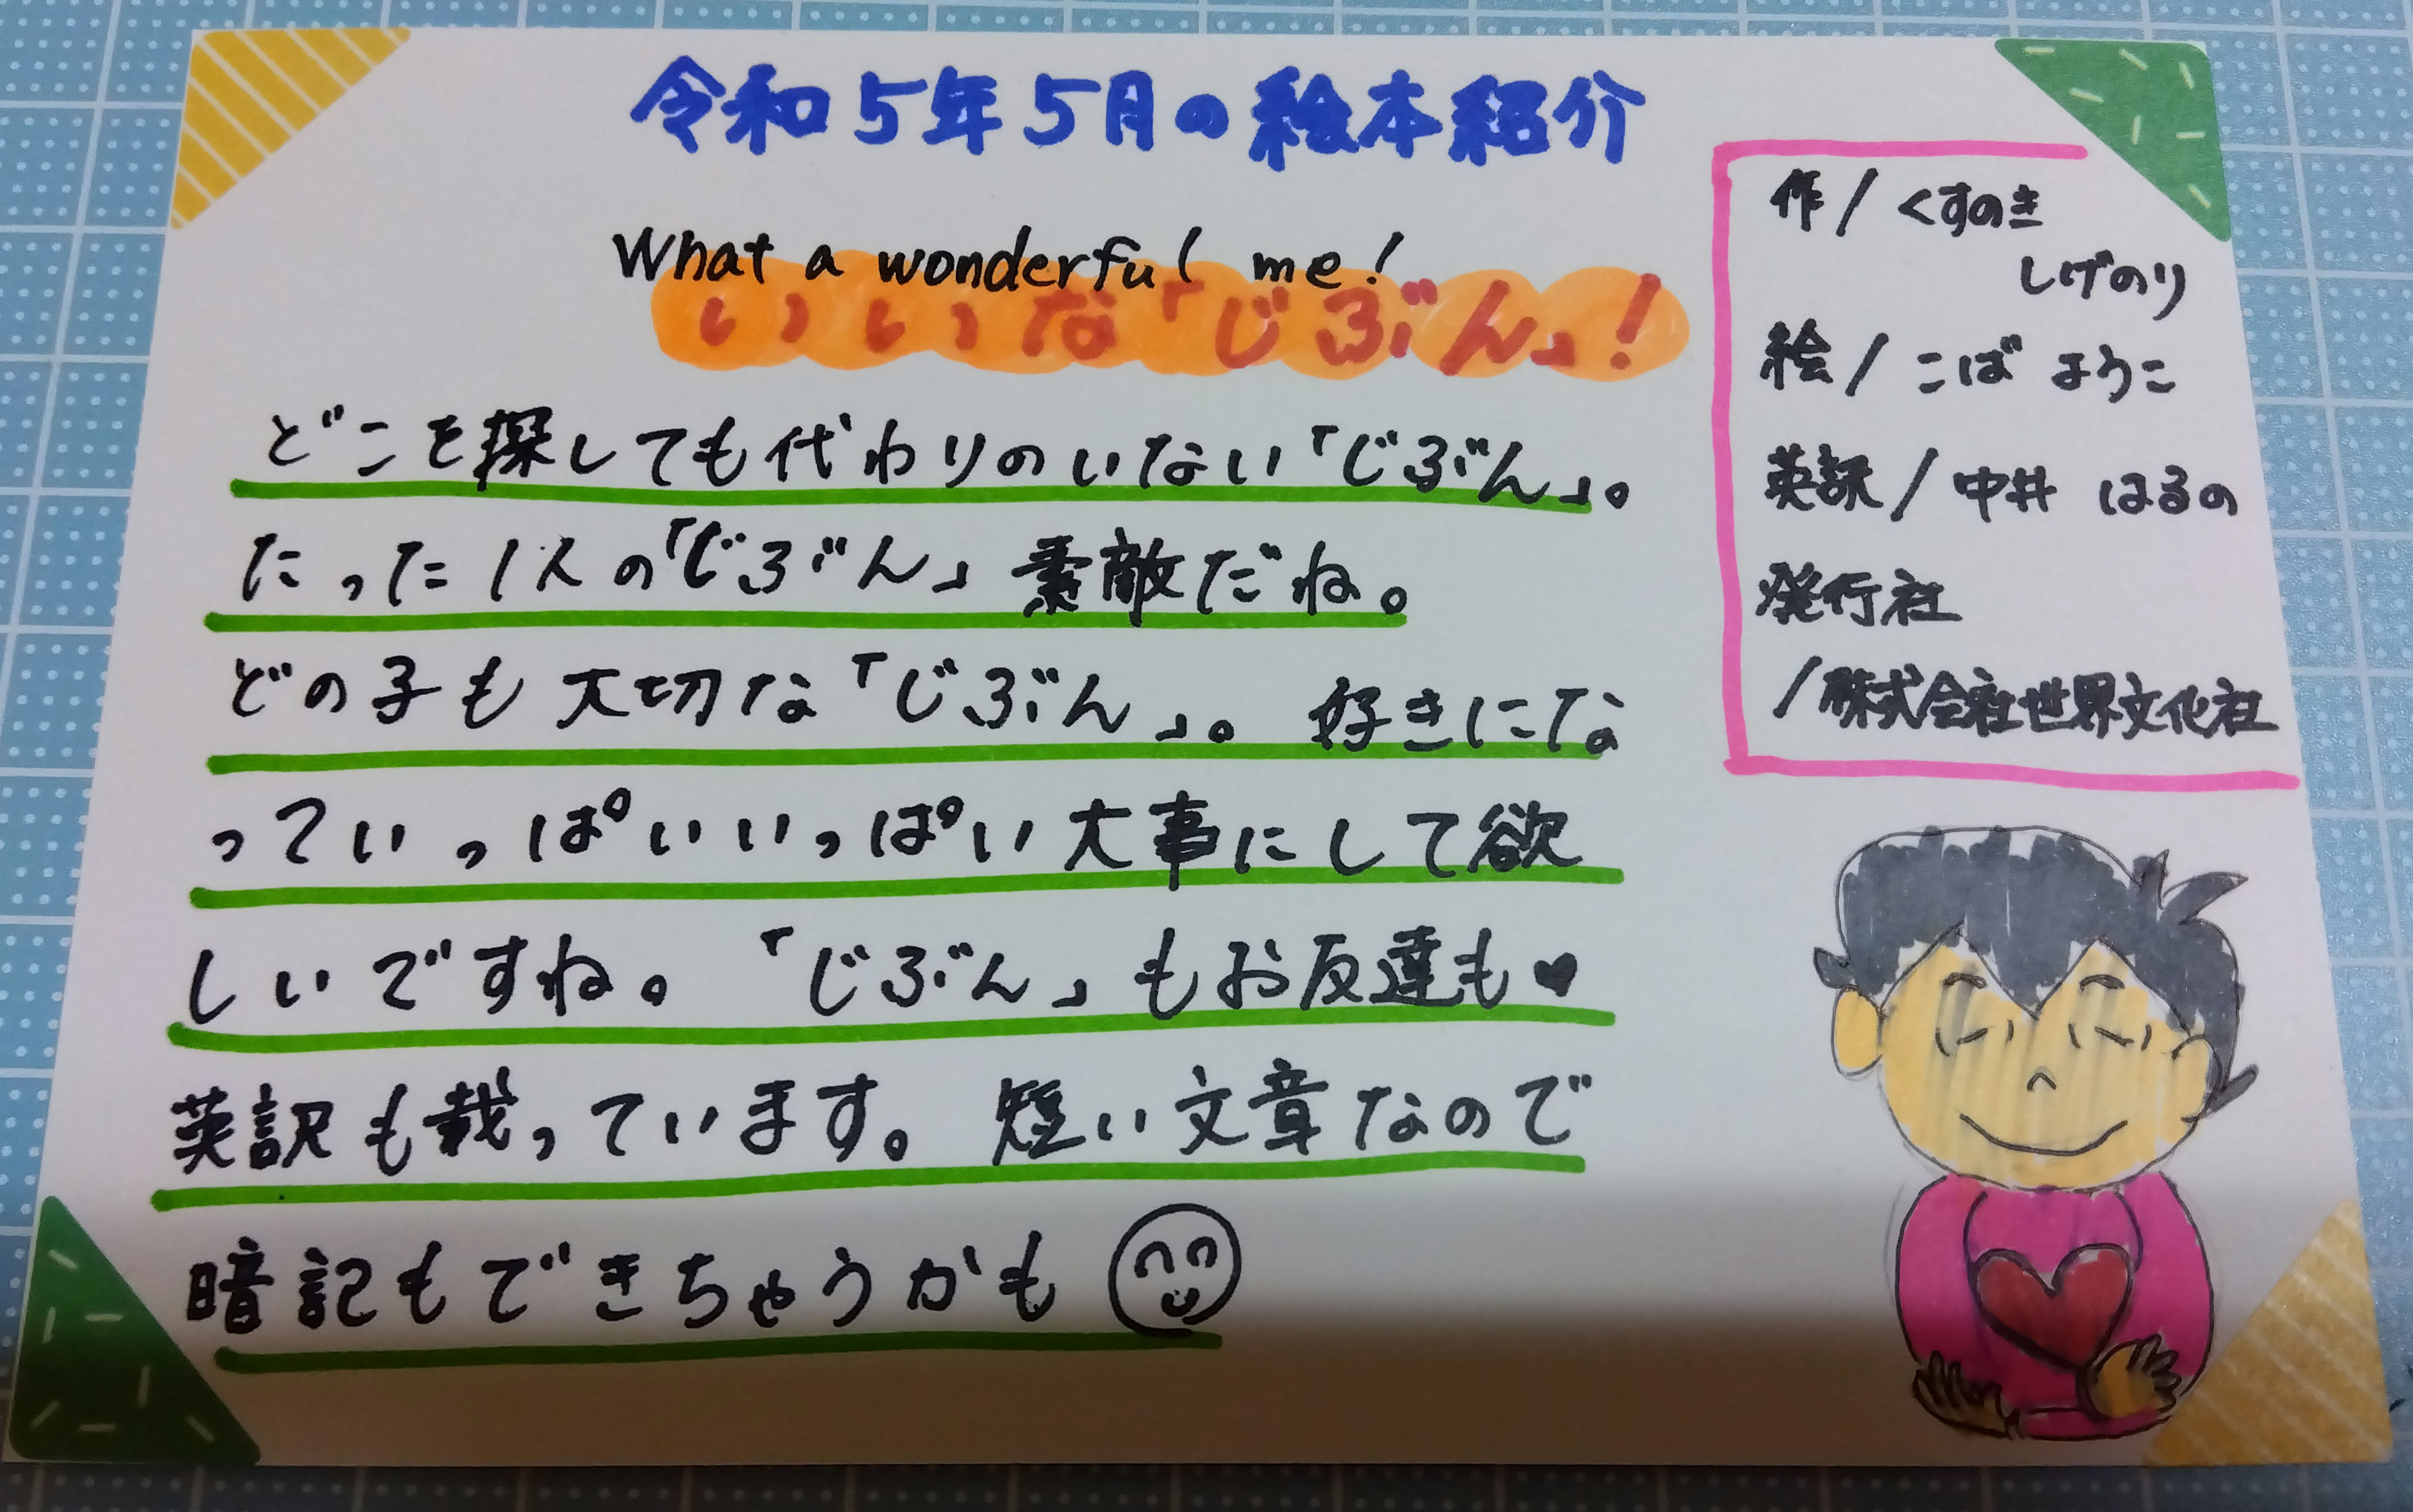 令和5年5月の絵本紹介
What a wonderful me!
いいな「じぶん」!
どこを探しても代わりのいない「じぶん」。
たった1人の「じぶん」素敵だね。
どの子も大切な「じぶん」。好きにな
っていっぱいいっぱい大事にして欲
しいですね。「じぶん」もお友達も♥
英訳も載っています。短い文章なので
暗記もできちゃうかも
作/くすのき
しげのり
絵/こば ようこ
英訳/中井 はるの
発行社
/株式会社世界文化社